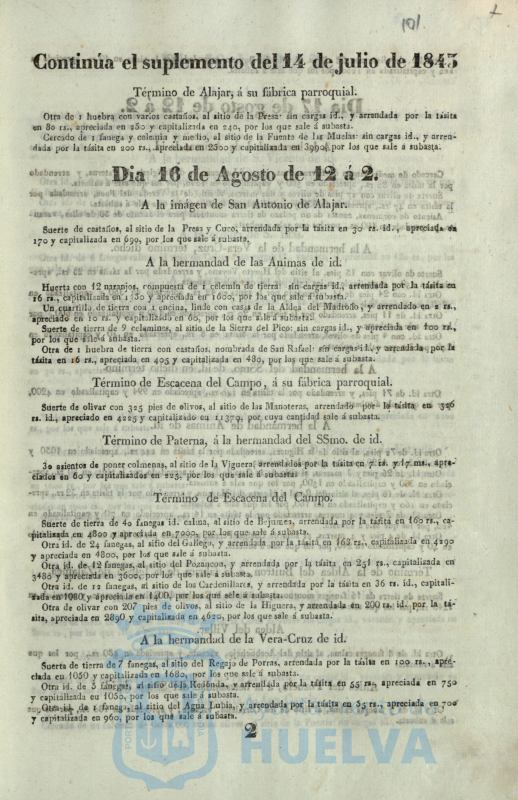 101
Continúa el suplemento del 14 de julio de 1843
Término de Alajar, á su fábrica parroquial.
Otra de 1 huebra con varios castaños, al sitio de la Presa: sin cargas id., y arrendada por la tásita
en 80 rs., apreciada en 250 y capitalizada en 240, por los que sale á subasta.
Cercado de 1 fanega y colemin y medio, al sitio de la Fuente de las Muelas: sin cargas id., y arren-
dada por la tásita en 100 rs., apreciada en 2500 y capitalizada en por los que sale á subasta.
Dia 16 de Agosto de 12 á 2.
A la imágen de San Antonio de Alajar.
Suerte de castaños, al sitio de la Presa y Curo, arrendada por la tásita en 30 rs. id., apreciada en
170 y capitalizada en 690, por los que sale á subasta.
A la hermandad de las Animas de id.
Huerta con 12 naranjos, rompuesta de 1 celemin de tierra: sin cargas id., arrendada por la tásita en
16 rs., capitalizada en 1350 y apreciada en 1600, por los que sale á subasta.
Un cuartillo de tierra con 1 encina, linde con casas de la Aldea del Madroño, y arrendado en 2 rs.,
apreciado en 10 rs. y capitalizado en 60, por los que sale á subasta.
Suerte de tierra de 9 celamines, al sitio de la Sierra del Pico: sin cargas id., y apreciada en 100 rs.,
por los que sale á subasta.
Otra de 1 huebra de tierra con castaños, nombrada de San Rafael: sin cargas id., y arrendada por la
tásita en 16 rs., apreciada en 405 y capitalizada en 480, por los que sale á subasta.
Término de Escacena del Campo, á su fábrica parroquial.
Suerte de olivar con 325 pies de olivos, al sitio de las Manoteras, arrendado por la tásita en 326
rs. id., apreciado en 4225 y capitalizado en 11379, por cuya cantidad sale á subasta.
Término de Paterna, á la hermandad del SSmo. de id.
30 asientos de poner colmenas, al sitio de la Viguera, arrendados por la tásita en 7 rs. y 17 ms., apre-
ciados en 60 y capitalizados en 225, por los que sale á subasta.
Término de Escacena del Campo.
Suerte de tierra de 40 fanegas id. calma, al sitio de Bejunea, arrendada por la tásita en 160 rs., ca-
pitalizada en 4800 y apreciada en 7000, por los que sale á subasta.
Otra id. de 24 fanegas, al sitio del Gallego, y arrendada por la tásita en 163 rs., capitalizada en 4290
y apreciada en 4800, por los que sale á subasta.
Otra id. de 12 fanegas, al sitio del Pozancon, y arrendada por la tásita en 251 rs., capitalizada en
3480 y apreciada en 3600, por los que sale á subasta.
Otra id. de 12 fanegas, al sitio de los Cardenillares, y arrendada por la tásita en 36 rs. id., capitali-
zada en 1080, y apreciada en 1400, por los que sale á subasta.
Otra de olivar con 207 pies de olivos, al sitio de la Higuera, y arrendada en 200 rs. id. por la tá-
sita, apreciada en 2890 y capitalizada en 4620, por los que sale á subasta.
A la hermandad de la Vera-Cruz de id.
Suerte de tierra de 7 fanegas, al sitio del Regajo de Porras, arrendada por la tásita en 100 rs., apre-
ciada en 1050 y capitalizada en 1680, por los que sale á subasta.
Otra id. de 5 fanegas, al sitio de la Redonda, y arrendada por la tásita en 55 rs., apreciada en 750
y capitalizada en 1050, por los que sale á subasta.
Otra id. de 1 fanega, al sitio del Agua Lubia, y arrendada por la tásita en 55 rs., apreciada en 700
y capitalizada en 960, por los que sale á subasta.
2
HUELVA